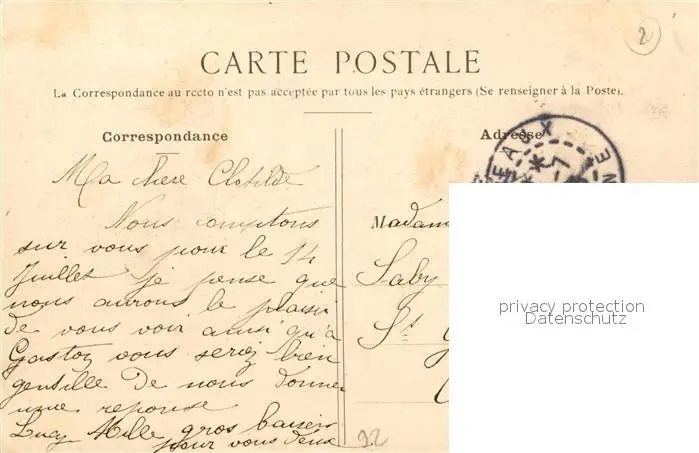 20
CARTE POSTALE
La Correspondance au recto n'est pas acceptée par tous les pays étrangers (Se renseigner à la Poste).
Correspondance
Ma chère Clotilde
Nous comptons
sur vous pour le 14
Juillet je pense que
nous aurons le plaisir
de vous voir ainsi qu'à
Gaston vous seriez bien
gentille de nous donner
une reponse
Lucy Mille gros baisers
pour vous deux
Adresse
EAUX
NE
Madam
Saby
St
privacy protection
Datenschutz
92